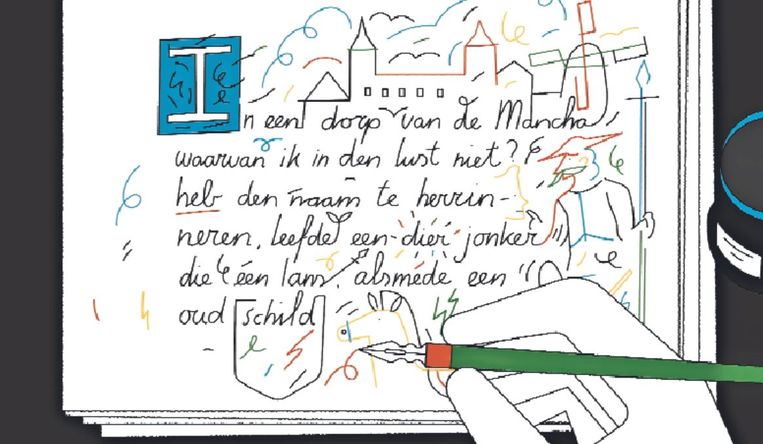 In een dorp van de Mancha
waarvan ik in den lust niet?
heb den naam te herrin-
neren, leefde een dier jonker
die één lans, alsmede een
oud schild